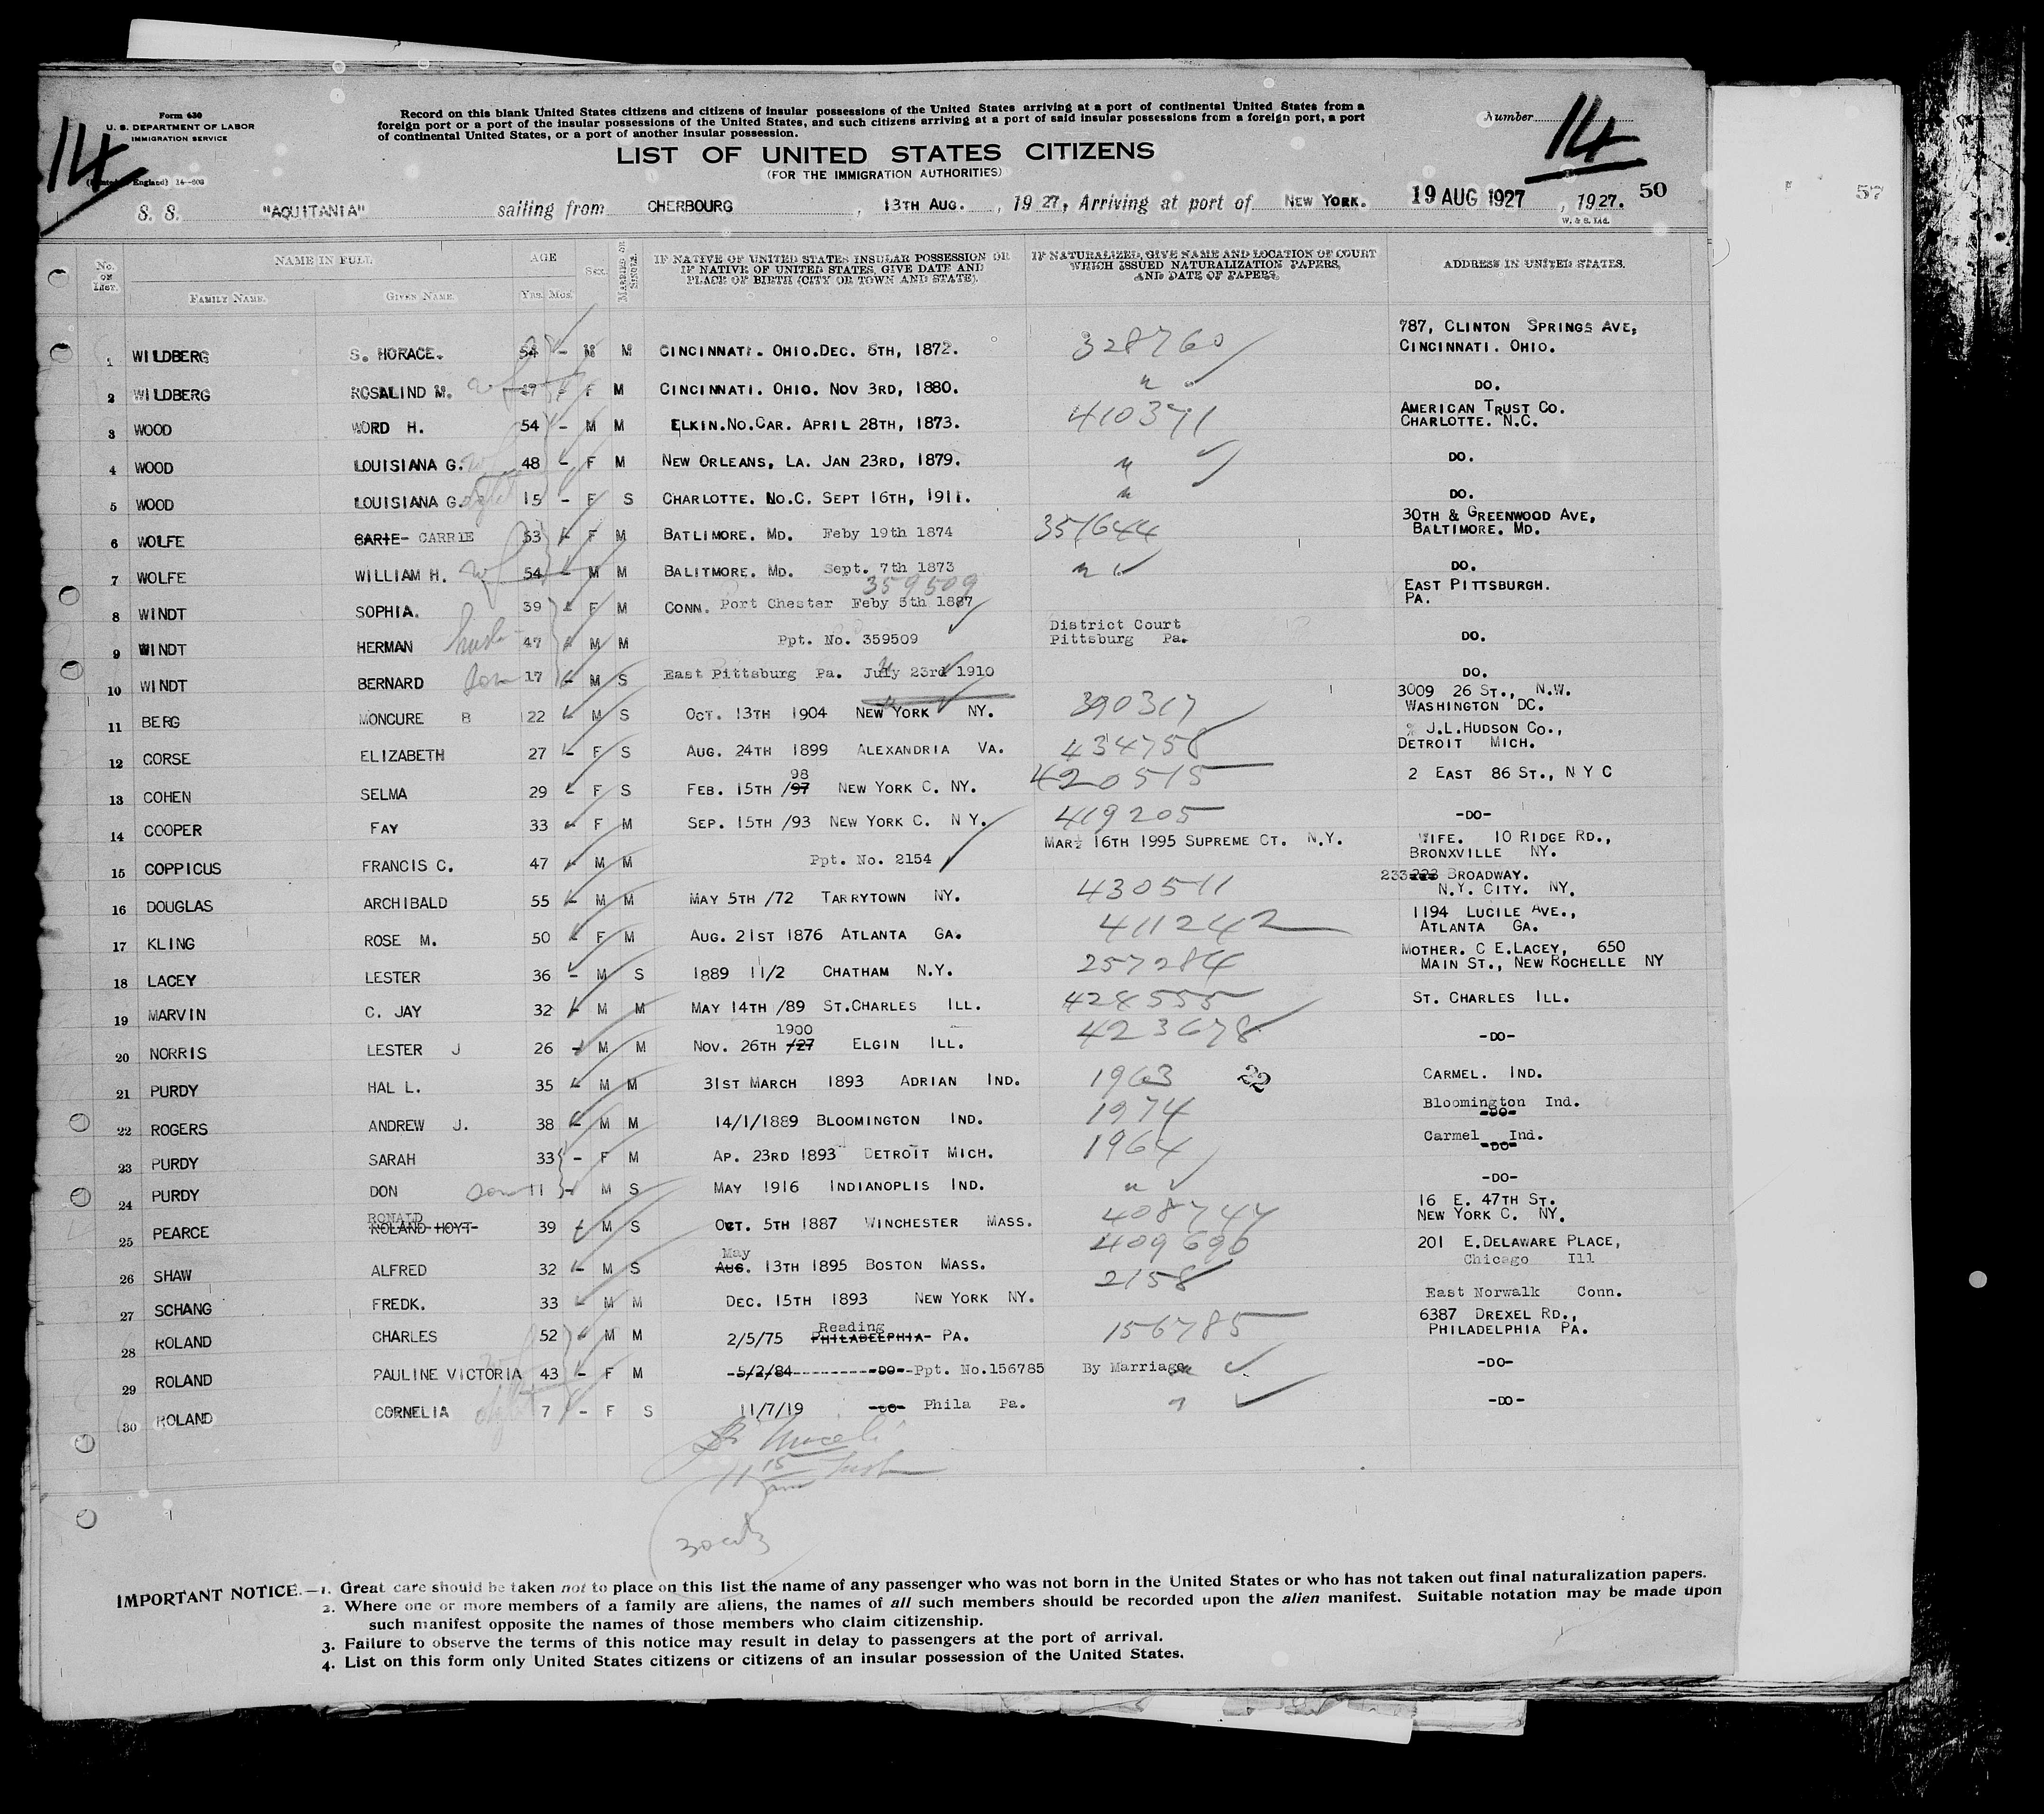 Form 630
U. S. DEPARTMENT OF LABOR
IMMIGRATION SERVICE
(Printed in England) 14-608
14
Record on this blank United States citizens and citizens of insular possessions of the United States arriving at a port of continental United States from a
foreign port or a port of the insular possessions of the United States, and such citizens arriving at a port of said insular possessions from a foreign port, a port
of continental United States, or a port of another insular possession.
Number 14
LIST OF UNITED STATES CITIZENS
(FOR THE IMMIGRATION AUTHORITIES)
S. S. "AQUITANIA" sailing from CHERBOURG, 13TH AUG., 1927, Arriving at port of NEW YORK. 19 AUG 1927, 1927. 50
W. & S. Ltd.
57
No. on List. NAME IN FULL FAMILY NAME. GIVEN NAME. AGE YRS. MOS. SEX. MARRIED OR SINGLE. IF NATIVE OF UNITED STATES INSULAR POSSESSION OR IF NATIVE OF UNITED STATES, GIVE DATE AND PLACE OF BIRTH (CITY OR TOWN AND STATE). IF NATURALIZED, GIVE NAME AND LOCATION OF COURT WHICH ISSUED NATURALIZATION PAPERS, AND DATE OF PAPERS. ADDRESS IN UNITED STATES.
1 WILDBERG S. HORACE. 54 - M M CINCINNATI. OHIO.DEC. 6TH, 1872. 328760 787, CLINTON SPRINGS AVE, CINCINNATI. OHIO.
2 WILDBERG ROSALIND M. wf 47 - F M CINCINNATI. OHIO. NOV 3RD, 1880. " DO.
3 WOOD WORD H. 54 - M M ELKIN.NO.CAR. APRIL 28TH, 1873. 410371 AMERICAN TRUST CO. CHARLOTTE. N.C.
4 WOOD LOUISIANA G. wf 48 - F M NEW ORLEANS, LA. JAN 23RD, 1879. " DO.
5 WOOD LOUISIANA G. 15 - F S CHARLOTTE. NO.C. SEPT 16TH, 1911. " DO.
6 WOLFE CARIE- CARRIE 53 - F M BATLIMORE. MD. Feby 19th 1874 351644 30TH & GREENWOOD AVE, BALTIMORE. MD.
7 WOLFE WILLIAM H. wf 54 - M M BALITMORE. MD. Sept. 7th 1873 " DO.
8 WINDT SOPHIA. 39 - F M CONN. Port Chester Feby 5th 1887 359509 EAST PITTSBURGH. PA.
9 WINDT HERMAN husb 47 - M M Ppt. No. 359509 District Court Pittsburg Pa. DO.
10 WINDT BERNARD son 17 - M S East Pittsburg Pa. July 23rd 1910 DO.
11 BERG MONCURE B 22 - M S OCT. 13TH 1904 NEW YORK NY. 390317 3009 26 ST., N.W. WASHINGTON DC.
12 CORSE ELIZABETH 27 - F S AUG. 24TH 1899 ALEXANDRIA VA. 434758 % J.L.HUDSON CO., DETROIT MICH.
13 COHEN SELMA 29 - F S FEB. 15TH /97 98 NEW YORK C. NY. 420515 2 EAST 86 ST., N Y C
14 COOPER FAY 33 - F M SEP. 15TH /93 NEW YORK C. N Y. 419205 -DO-
15 COPPICUS FRANCIS C. 47 - M M Ppt. No. 2154 MAR. 16TH 1995 SUPREME CT. N.Y. WIFE. 10 RIDGE RD., BRONXVILLE NY.
16 DOUGLAS ARCHIBALD 55 - M M MAY 5TH /72 TARRYTOWN NY. 430511 233 BROADWAY. N.Y. CITY. NY.
17 KLING ROSE M. 50 - F M AUG. 21ST 1876 ATLANTA GA. 411242 1194 LUCILE AVE., ATLANTA GA.
18 LACEY LESTER 36 - M S 1889 11/2 CHATHAM N.Y. 257284 MOTHER. C E.LACEY, 650 MAIN ST., NEW ROCHELLE NY
19 MARVIN C. JAY 32 - M M MAY 14TH /89 ST.CHARLES ILL. 424555 ST. CHARLES ILL.
20 NORRIS LESTER J 26 - M M NOV. 26TH /27 1900 ELGIN ILL. 423678 -DO-
21 PURDY HAL L. 35 - M M 31ST MARCH 1893 ADRIAN IND. 1963 22 CARMEL. IND.
22 ROGERS ANDREW J. 38 - M M 14/1/1889 BLOOMINGTON IND. 1974 Bloomington Ind. -DO-
23 PURDY SARAH 33 - F M AP. 23RD 1893 DETROIT MICH. 1964 Carmel Ind. -DO-
24 PURDY DON son 11 - M S MAY 1916 INDIANOPLIS IND. " -DO-
25 PEARCE RONALD ROLAND HOYT- 39 - M S OCT. 5TH 1887 WINCHESTER MASS. 408747 16 E. 47TH ST. NEW YORK C. NY.
26 SHAW ALFRED 32 - M S May AUG. 13TH 1895 BOSTON MASS. 409690 201 E.DELAWARE PLACE, Chicago Ill
27 SCHANG FREDK. 33 - M M DEC. 15TH 1893 NEW YORK NY. 2158 East Norwalk Conn.
28 ROLAND CHARLES 52 - M M 2/5/75 Reading PHILADELPHIA- PA. 156785 6387 DREXEL RD., PHILADELPHIA PA.
29 ROLAND PAULINE VICTORIA 43 - F M -5/2/84 -DO- Ppt. No.156785 By Marriage -DO-
30 ROLAND CORNELIA 7 - F S 11/7/19 -DO- Phila Pa. " -DO-
IMPORTANT NOTICE.—1. Great care should be taken not to place on this list the name of any passenger who was not born in the United States or who has not taken out final naturalization papers.
2. Where one or more members of a family are aliens, the names of all such members should be recorded upon the alien manifest. Suitable notation may be made upon
such manifest opposite the names of those members who claim citizenship.
3. Failure to observe the terms of this notice may result in delay to passengers at the port of arrival.
4. List on this form only United States citizens or citizens of an insular possession of the United States.